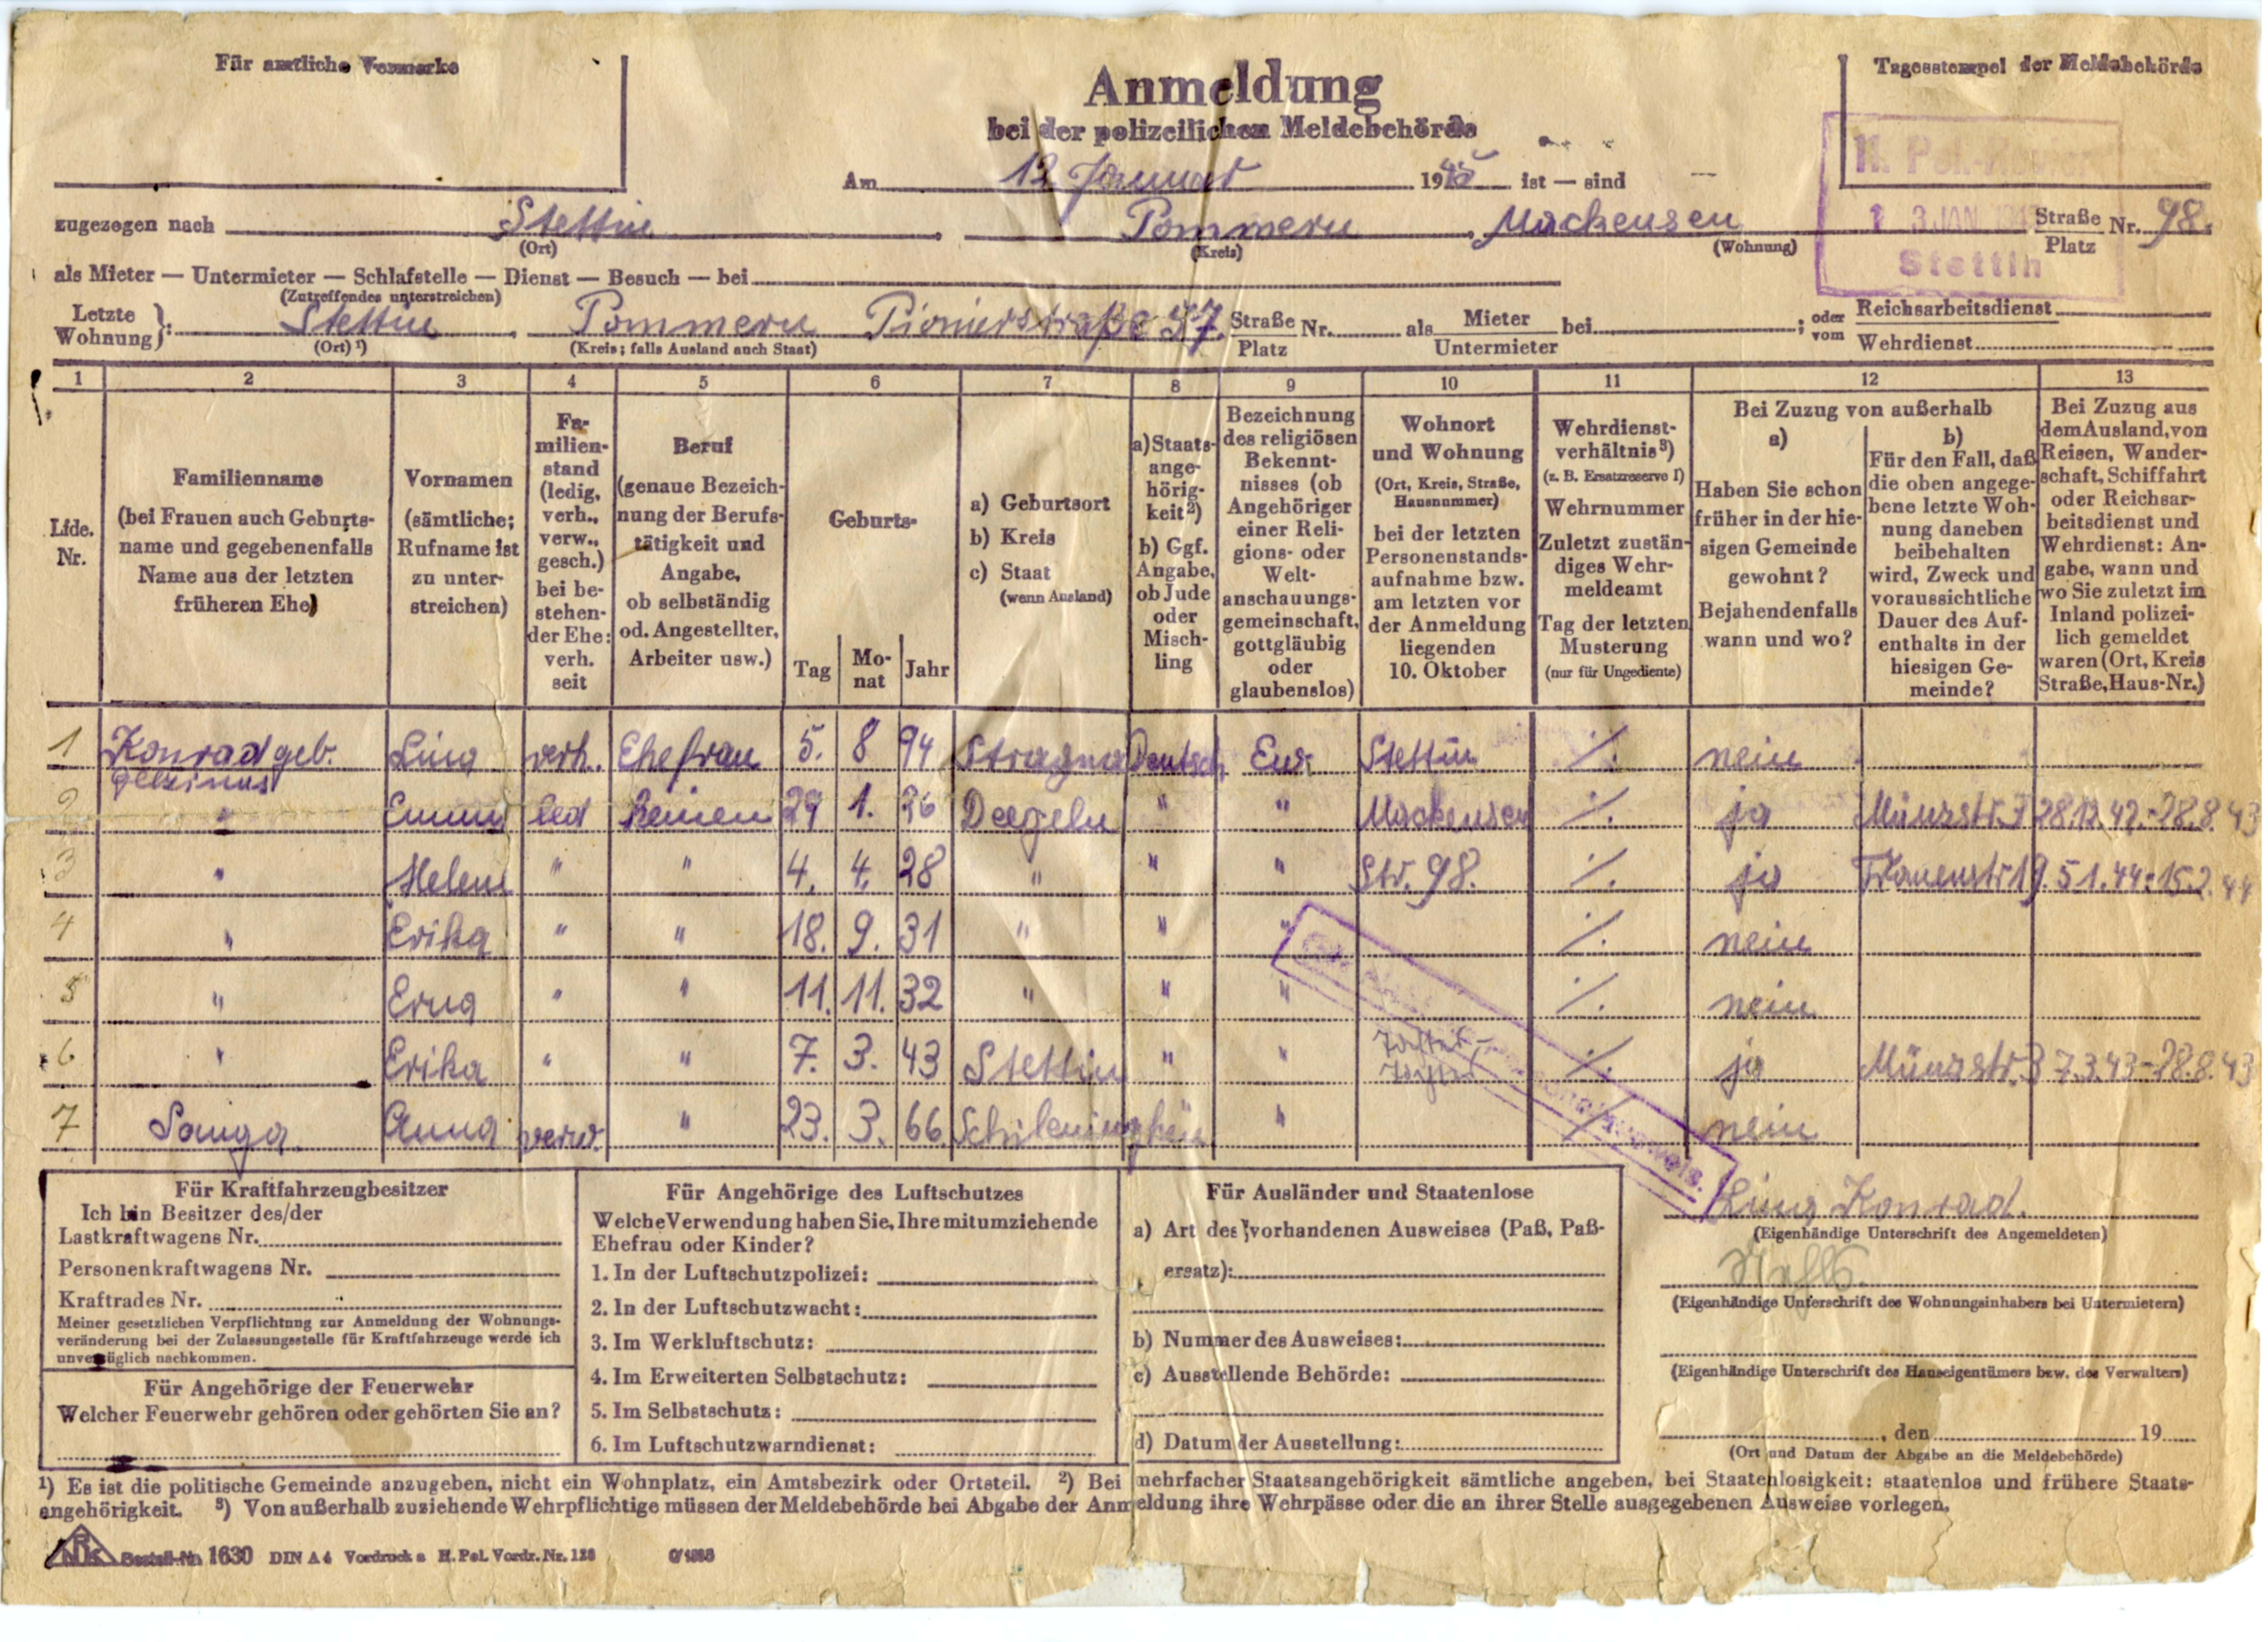 Für amtliche Vermerke
Anmeldung
bei der polizeilichen Meldebehörde
Tagesstempel der Meldebehörde
Am 12 Januar 1945 ist — sind
II. Pol.-Revier
1 3. JAN 194
Stettin
zugezogen nach Stettin, Pommern, Mackensen Straße Platz Nr. 98.
(Ort) (Kreis) (Wohnung)
als Mieter — Untermieter — Schlafstelle — Dienst — Besuch — bei
(Zutreffendes unterstreichen)
Letzte Wohnung }: Stettin, Pommern Pionierstraße 57. Straße Platz Nr. als Mieter Untermieter bei ; oder vom Reichsarbeitsdienst Wehrdienst
(Ort) ¹) (Kreis; falls Ausland auch Staat)
1 2 3 4 5 6 7 8 9 10 11 12 13
Lfde. Nr.
Familienname
(bei Frauen auch Geburts-
name und gegebenenfalls
Name aus der letzten
früheren Ehe)
Vornamen
(sämtliche;
Rufname ist
zu unter-
streichen)
Fa-
milien-
stand
(ledig,
verh.,
verw.,
gesch.)
bei be-
stehen-
der Ehe:
verh.
seit
Beruf
(genaue Bezeich-
nung der Berufs-
tätigkeit und
Angabe,
ob selbständig
od. Angestellter,
Arbeiter usw.)
Geburts-
Tag Mo-nat Jahr
a) Geburtsort
b) Kreis
c) Staat
(wenn Ausland)
a) Staats-
ange-
hörig-
keit²)
b) Ggf.
Angabe,
ob Jude
oder
Misch-
ling
Bezeichnung
des religiösen
Bekennt-
nisses (ob
Angehöriger
einer Reli-
gions- oder
Welt-
anschauungs-
gemeinschaft,
gottgläubig
oder
glaubenslos)
Wohnort
und Wohnung
(Ort, Kreis, Straße,
Hausnummer)
bei der letzten
Personenstands-
aufnahme bzw.
am letzten vor
der Anmeldung
liegenden
10. Oktober
Wehrdienst-
verhältnis³)
(z. B. Ersatzreserve I)
Wehrnummer
Zuletzt zustän-
diges Wehr-
meldeamt
Tag der letzten
Musterung
(nur für Ungediente)
Bei Zuzug von außerhalb
a)
Haben Sie schon
früher in der hie-
sigen Gemeinde
gewohnt?
Bejahendenfalls
wann und wo?
b)
Für den Fall, daß
die oben angege-
bene letzte Woh-
nung daneben
beibehalten
wird, Zweck und
voraussichtliche
Dauer des Auf-
enthalts in der
hiesigen Ge-
meinde?
Bei Zuzug aus
dem Ausland, von
Reisen, Wander-
schaft, Schiffahrt
oder Reichsar-
beitsdienst und
Wehrdienst: An-
gabe, wann und
wo Sie zuletzt im
Inland polizei-
lich gemeldet
waren (Ort, Kreis
Straße, Haus-Nr.)
1 Konrad geb. Lina verh. Ehefrau 5. 8 94 Deutsch Ev. Stettin ./. nein
2 " Emma led keinen 29 1. 26 Deegeln " " Mackensen ./. ja Münzstr. 3 28.12.42.-28.8.43
3 " Helene " " 4. 4. 28 " " " Str. 98. ./. ja Frauenstr 19. 5.1.44-15.2.44
4 " Erika " " 18. 9. 31 " " " ./. nein
5 " Erna " " 11. 11. 32 " " " ./. nein
6 " Erika " " 7. 3. 43 Stettin " " ./. ja Münzstr. 3 7.3.43-28.8.43
7 Anna verw. " 23. 3. 66 " ./. nein
Für Kraftfahrzeugbesitzer
Ich bin Besitzer des/der
Lastkraftwagens Nr.
Personenkraftwagens Nr.
Kraftrades Nr.
Meiner gesetzlichen Verpflichtung zur Anmeldung der Wohnungs-
veränderung bei der Zulassungsstelle für Kraftfahrzeuge werde ich
unverzüglich nachkommen.
Für Angehörige der Feuerwehr
Welcher Feuerwehr gehören oder gehörten Sie an?
Für Angehörige des Luftschutzes
Welche Verwendung haben Sie, Ihre mitumziehende
Ehefrau oder Kinder?
1. In der Luftschutzpolizei:
2. In der Luftschutzwacht:
3. Im Werkluftschutz:
4. Im Erweiterten Selbstschutz:
5. Im Selbstschutz:
6. Im Luftschutzwarndienst:
Für Ausländer und Staatenlose
a) Art des vorhandenen Ausweises (Paß, Paß-
ersatz):
b) Nummer des Ausweises:
c) Ausstellende Behörde:
d) Datum der Ausstellung:
Lina Konrad.
(Eigenhändige Unterschrift des Angemeldeten)
(Eigenhändige Unterschrift des Wohnungsinhabers bei Untermietern)
(Eigenhändige Unterschrift des Hauseigentümers bzw. des Verwalters)
, den 19
(Ort und Datum der Abgabe an die Meldebehörde)
¹) Es ist die politische Gemeinde anzugeben, nicht ein Wohnplatz, ein Amtsbezirk oder Ortsteil. ²) Bei mehrfacher Staatsangehörigkeit sämtliche angeben, bei Staatenlosigkeit: staatenlos und frühere Staats-
angehörigkeit. ³) Von außerhalb zuziehende Wehrpflichtige müssen der Meldebehörde bei Abgabe der Anmeldung ihre Wehrpässe oder die an ihrer Stelle ausgegebenen Ausweise vorlegen.
Bestell-Nr. 1630 DIN A 4 Vordruck a H. Pol. Vordr. Nr. 128